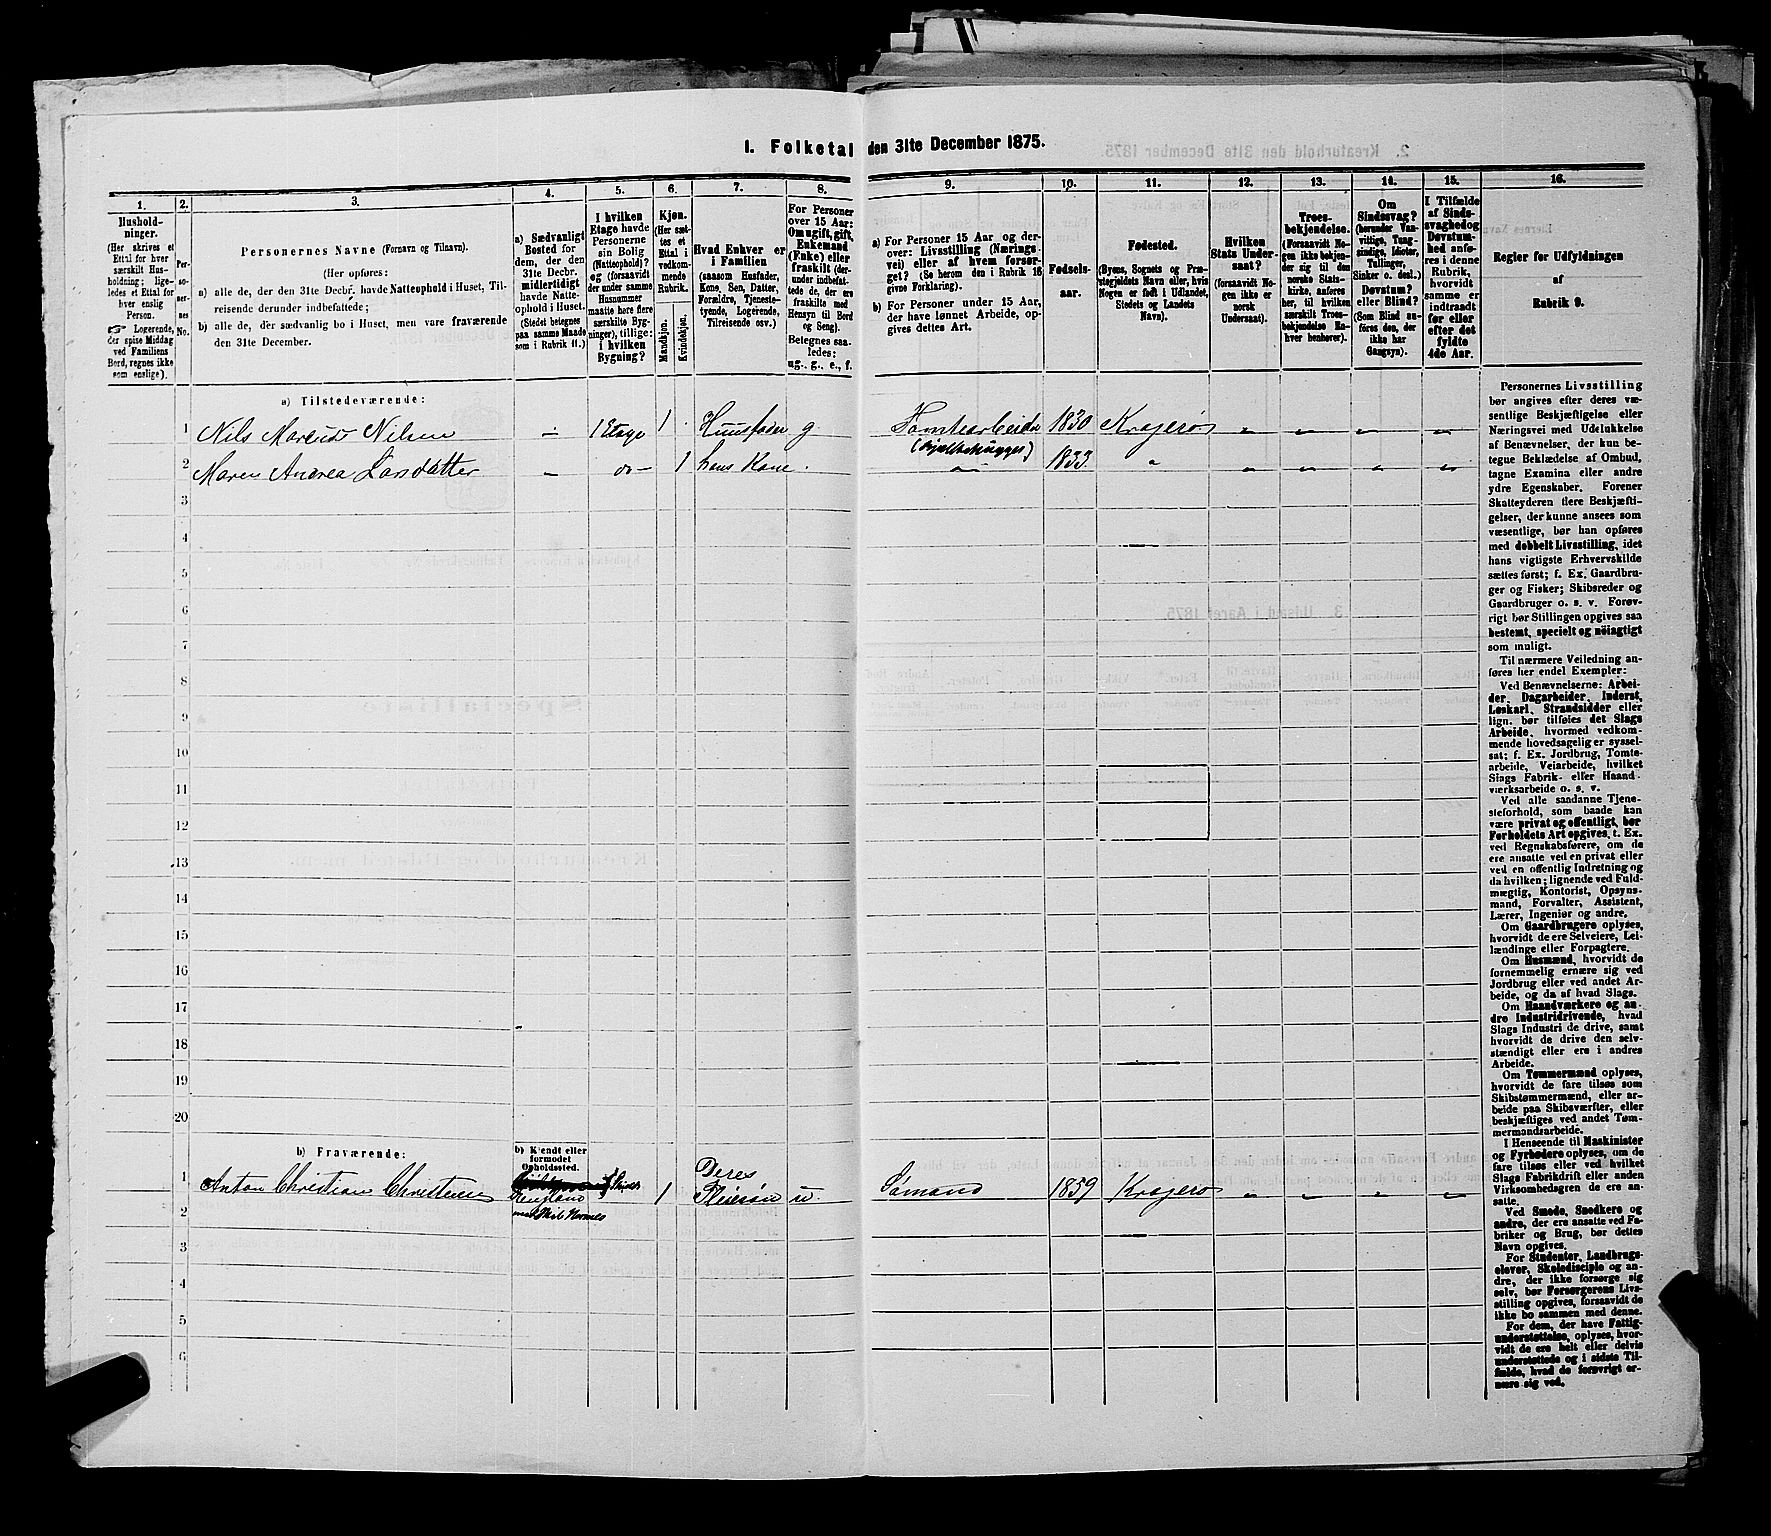 1. Folketal den 31te December 1875.
1.
2.
3.
4.
5.
6.
7.
8.
9.
10.
11.
12.
13.
14.
15.
16.
Hushold-
ninger.
(Her skrives et
Ettal for hver
særskilt Hus-
holdning; lige-
ledes et Ettal for
hver enslig
Person.
☞ Logerende,
der spise Middag
ved Familiens
Bord, regnes ikke
som enslige).
Per-
so-
ner-
nes
No.
Personernes Navne (Fornavn og Tilnavn).
(Her opføres:
a) alle de, der den 31te Decbr. havde Natteophold i Huset, Til-
reisende derunder indbefattede;
b) alle de, der sædvanlig bo i Huset, men vare fraværende
den 31te December.
a) Sædvanligt
Bosted for
dem, der den
31te Decbr.
midlertidigt
havde Natte-
ophold i Huset.
(Stedet betegnes
paa samme Maade
som i Rubrik 11.)
I hvilken
Etage havde
Personerne
sin Bolig
(Natteophold)?
(forsaavidt
der under samme
Husnummer
maatte høre flere
særskilte Byg-
ninger), tillige:
i hvilken
Bygning?
Kjøn.
(Her sæt-
tes et
Ettal i
vedkom-
mende
Rubrik.
Mandkjøn.
Kvindekjøn.
Hvad Enhver er
i Familien
(saasom Husfader,
Kone, Søn, Datter,
Forældre, Tjeneste-
tyende, Logerende,
Tilreisende osv.)
For Personer
over 15 Aar:
Om ugift, gift,
Enkemand
(Enke) eller
fraskilt (der-
under indbefat-
tede de, der ere
fraskilte med
Hensyn til Bord
og Seng).
Betegnes saa-
ledes:
ug., g., e., f.
a) For Personer 15 Aar og der-
over: Livsstilling (Nærings-
vei) eller af hvem forsør-
get? (Se herom den i Rubrik 16
givne Forklaring).
b) For Personer under 15 Aar,
der have lønnet Arbeide, op-
gives dettes Art.
Fødsels-
aar.
Fødested.
(Byens, Sognets og Præ-
stegjeldets Navn eller, hvis
Nogen er født i Udlandet,
Stedets og Landets
Navn).
Hvilken
Stats Under-
saat?
(forsaavidt No-
gen ikke er
norsk
Undersaat).
Troes-
bekjendelse.
(Forsaavidt No-
gen ikke bekjen-
der sig til den
norske Stats-
kirke, anføres
her, til hvilken
særskilt Troes-
bekjendelse En-
hver henhører).
Om
Sindssvag?
(herunder Van-
vittige, Tung-
sindige, Idioter,
Tullinger,
Sinker o. desl.).
Døvstum?
eller Blind?
(Som Blind an-
føres den, der
ikke har
Gangsyn).
I Tilfælde
af Sinds-
svaghed og
Døvstum-
hed anfø-
res i denne
Rubrik,
hvorvidt
samme er
indtraadt
før eller
efter det
fyldte
4de Aar.
Regler for Udfyldningen
af
Rubrik 9.
a) Tilstedeværende:
1 Nils Marcus Nilsen 1 Etage 1 Huusfader g. Tomtearbeider 1830 Kragerø
2 Maren Andrea Larsdatter — do — 1 hans Kone 1833
3
4
5
6
7
8
9
10
11
12
13
14
15
16
17
18
19
20
b) Fraværende:
b) Kjendt eller
formodet
Opholdssted.
1 Anton Christian Christensen England 1 Deres Pleiesøn u. Sømand 1859 Kragerø
2
3
4
5
6
Personernes Livsstilling
bør angives efter deres væ-
sentlige Beskjæftigelse eller
Næringsvei med Udelukkelse
af Benævnelser, der kun be-
tegne Beklædelse af Ombud,
tagne Examina eller andre
ydre Egenskaber. Forener
Skatteyderen flere Beskjæfti-
gelser, der kunne ansees som
væsentlige, bør han opføres
med dobbelt Livsstilling, idet
hans vigtigste Erhvervskilde
sættes først; f. Ex. Gaardbru-
ger og Fisker; Skibsreder og
Gaardbruger o. s. v. Forøv-
rigt bør Stillingen opgives saa
bestemt, specielt og nøiagtigt
som muligt.
Til nærmere Veiledning an-
føres her endel Exempler:
Ved Benævnelserne: Arbei-
der, Dagarbeider, Inderst,
Løskarl, Strandsidder eller
lign. bør tilføies det Slags
Arbeide, hvormed vedkom-
mende hovedsagelig er syssel-
sat; f. Ex. Jordbrug, Tomte-
arbeide, Veiarbeide, hvilket
Slags Fabrik- eller Haand-
værksarbeide o. s. v.
Ved alle saadanne Tjene-
steforhold, som baade kan
være privat og offentligt, bør
Forholdets Art opgives, t. Ex.
ved Regnskabsførere, om de
ere ansatte ved en privat eller
ved en offentlig Indretning og
da hvilken; lignende ved Fuld-
mægtig, Kontorist, Opsyns-
mand, Forvalter, Assistent,
Lærer, Ingeniør og andre.
Om Gaardbrugere oplyses,
hvorvidt de ere Selveiere, Lei-
lændinge eller Forpagtere.
Om Husmænd, hvorvidt de
fornemmelig ernære sig ved
Jordbrug eller ved andet Ar-
beide, og da af hvad Slags.
Om Haandværkere og an-
dre Industridrivende, hvad
Slags Industri de drive, samt
hvorvidt de drive den selv-
stændigt eller ere i andres
Arbeide.
Om Tømmermænd oplyses,
hvorvidt de fare tilsøs som
Skibstømmermænd, eller ar-
beide paa Skibsværfter, eller
beskjæftiges ved andet Tøm-
mermandsarbeide.
I Henseende til Maskinister
og Fyrbødere oplyses, om de
fare tilsøs eller ved hvilket
Slags Fabrikdrift eller anden
Virksomhedsgren de ere an-
satte.
Ved Smede, Snedkere og
andre, der ere ansatte ved Fa-
briker og Brug, bør dettes
Navn opgives.
For Studenter, Landbrugs-
elever, Skoledisciple og an-
dre, der ikke forsørge sig
selv, bør Forsørgerens Livs-
stilling opgives, forsaavidt de
ikke bo sammen med denne.
For dem, der have Fattig-
understøttelse, oplyses, hvor-
vidt de ere helt eller delvis
understøttede og i sidste Til-
fælde, hvad de forøvrigt er-
nære sig ved.